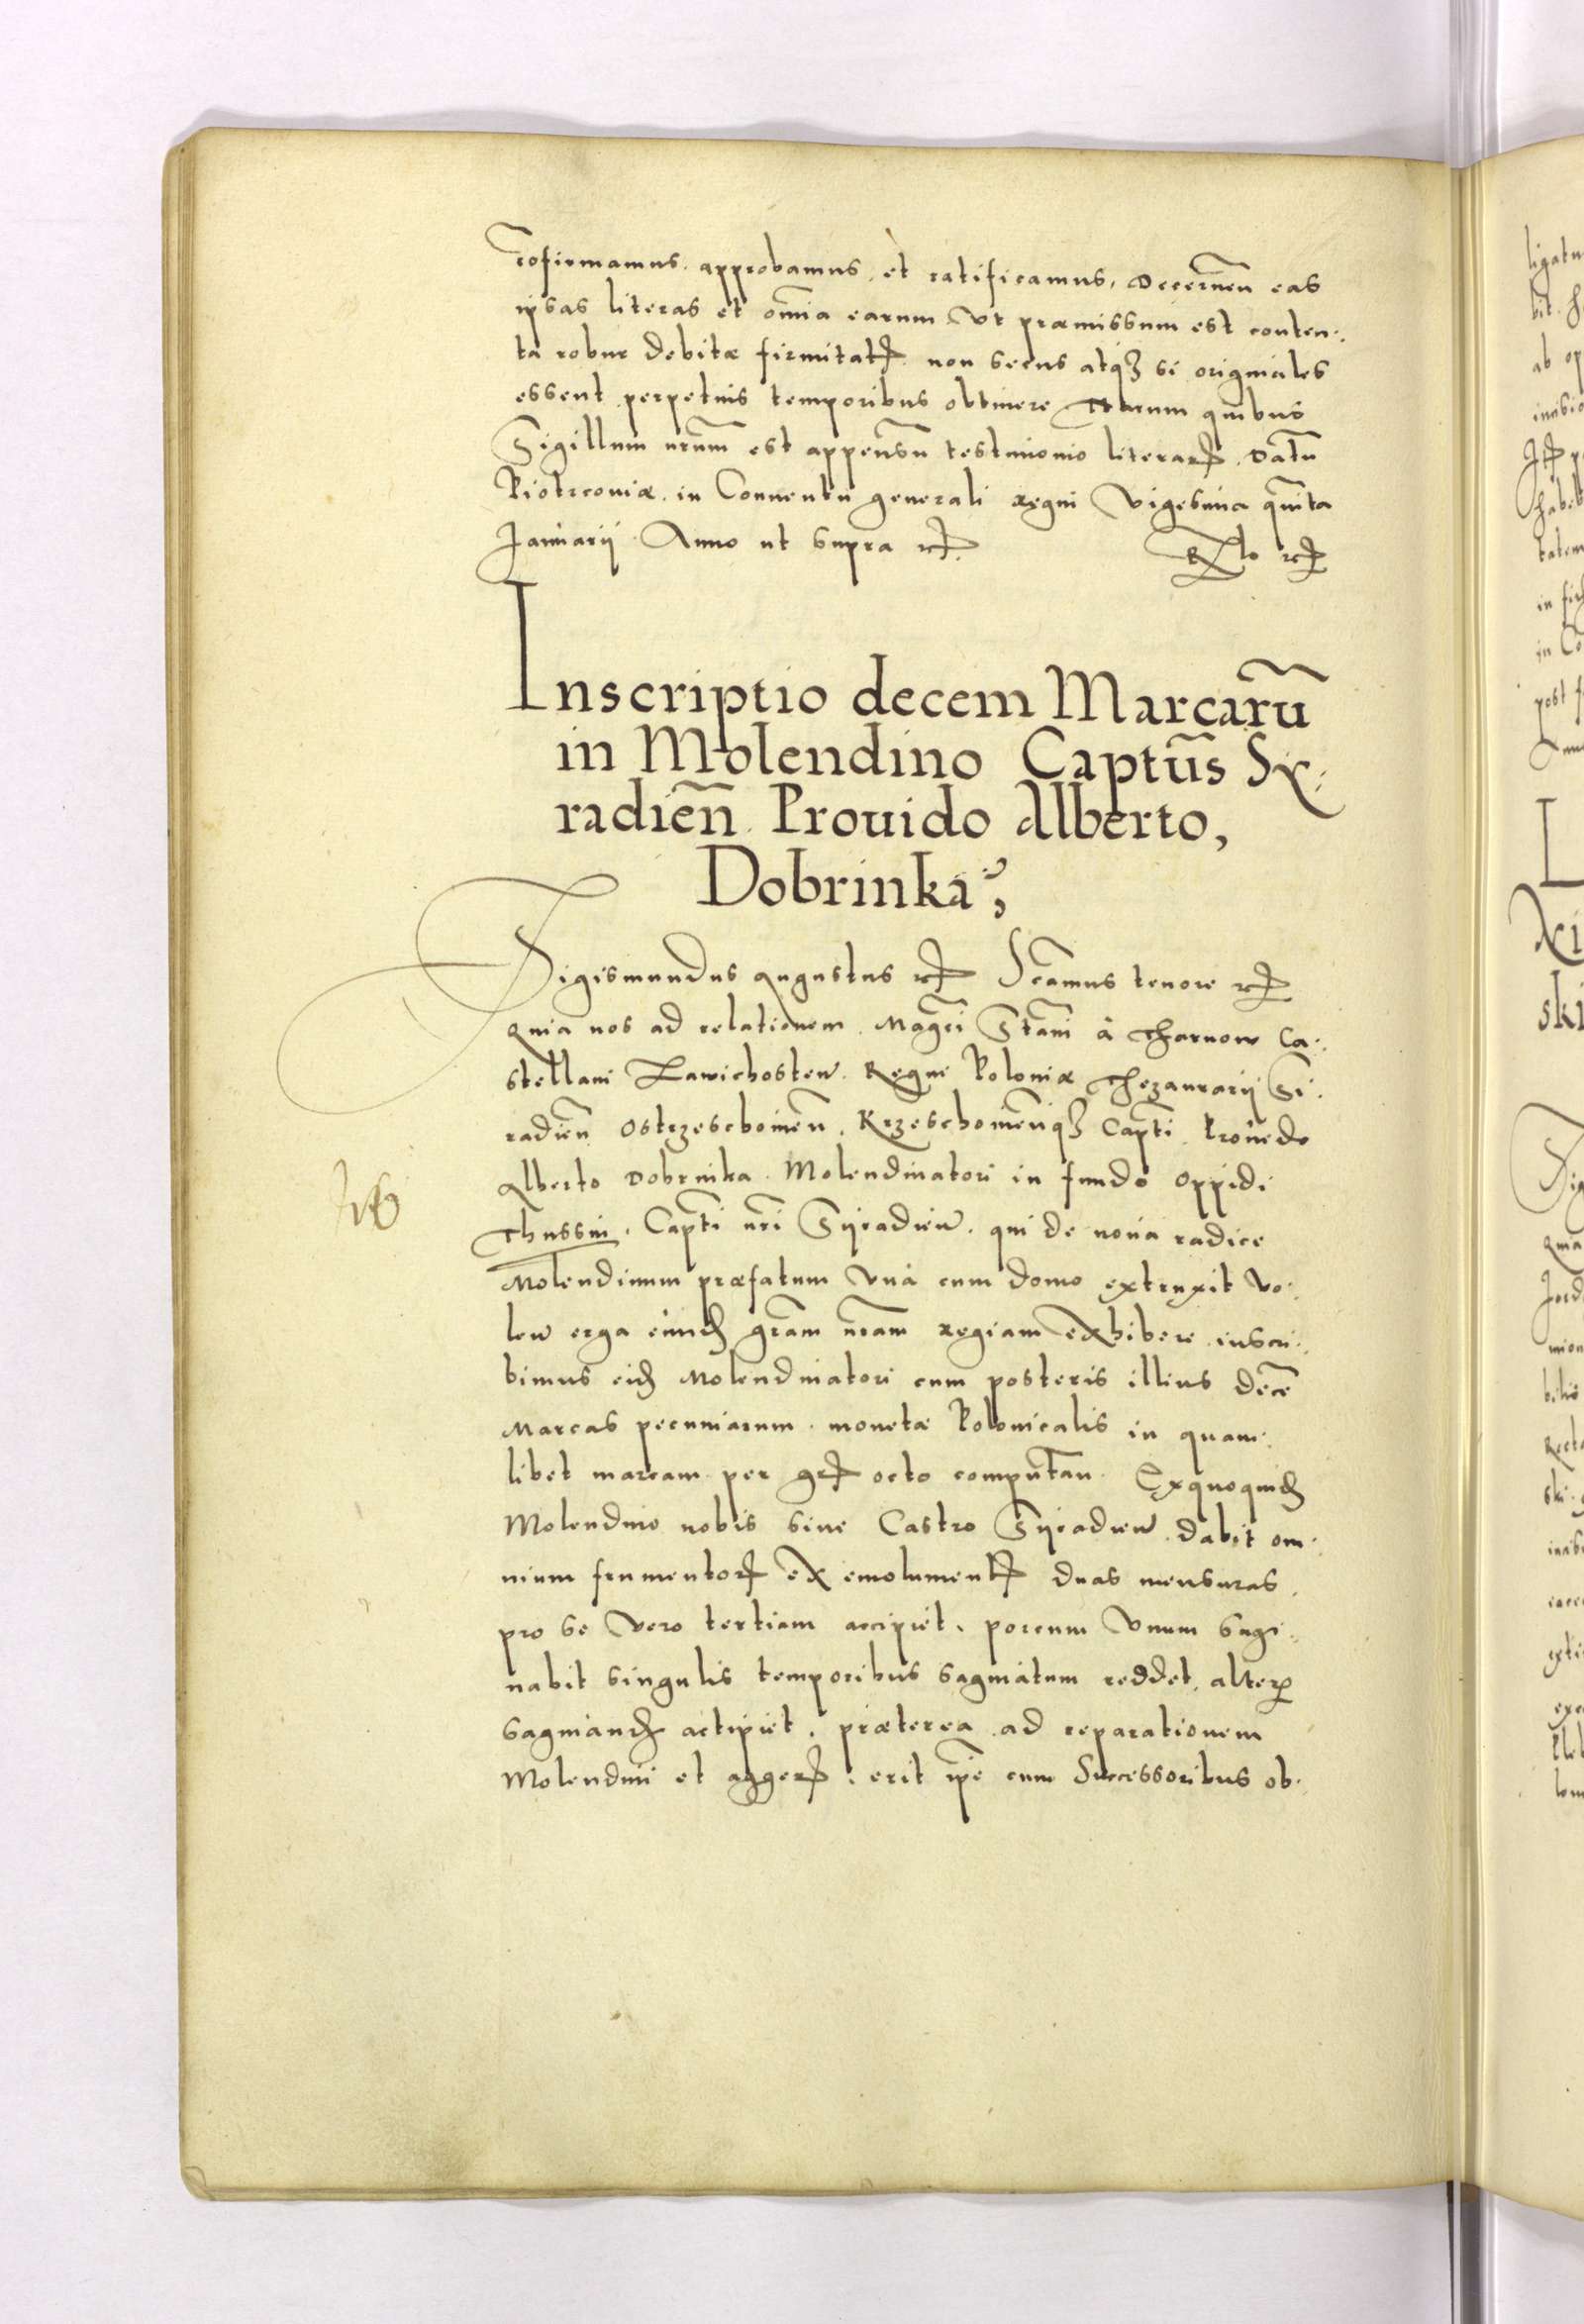 cõfirmamus. approbamus. et ratificamus, Decerneñ eas
ipsas literas et om̃ia earum Vt præmissum est conten.
ta robur debitæ firmitatꝭ non secus atqꝫ si originales
essent perpetuis temporibus obtinere Harum quibus
Sigillum nr̃um est appensũ testimonio literarꝭ. Datũ
Piotrcoviæ. in Conventu generali regni Vigesima quĩta
Januarij Anno ut supra rꝭ. Rꝭlo rꝭ
Inscriptio decem Marcarũ
in Molendino Captũs Sy.
radieñ. Prouido Alberto,
Dobrinka,
Sigismundus Augustus rꝭ Sc̃amus tenore rꝭ
Quia nos ad relationem. Mag̃ci Stãni à Tharnow Ca.
stellani Zawichosteñ. Regni Poloniæ Thezaurarij Si.
radieñ Ostrzeschovieñ. Krzeschovieñqꝫ Capt̃i Provido
Alberto Dobrinka. Molendinatori in fundo Oppidi
Thussin. Capt̃i nr̃i Syradieñ. qui de nova radice
Molendinum præfatum Vnà cum domo extruxit Vo.
leñ erga eũndꝫ gr̃am nr̃am regiam exhibere inscri.
bimus eidꝫ Molendinatori cum posteris illius decẽ
Marcas pecuniarum. monetæ Polonicalis in quam.
libet marcam per grꝭ octo computañ. Exquoquidꝫ
Molendino nobis sive Castro Syradieñ. dabit om.
nium frumentorꝭ ex emolumentꝭ duas mensuras.
pro se Vero tertiam accipiet. porcum Vnum sagi.
nabit singulis temporibus saginatum reddet, alterꝫ
saginandꝫ accipiet. præterea ad reparationem
Molendini et aggerꝭ. erit ip̃e cum Successoribus ob.